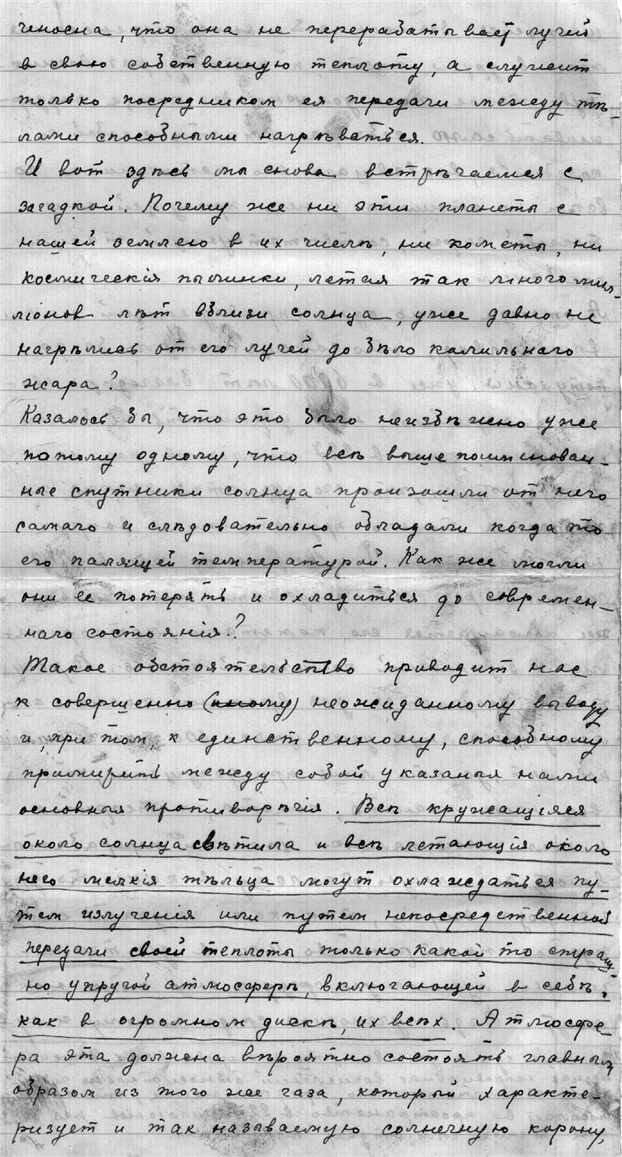 ченосна, что она не перерабатывает лучей
в свою собственную теплоту, а служит
только посредником ея передачи между тѣ-
лами способными нагрѣваться.
И вот здѣсь мы снова встрѣчаемся с
загадкой. Почему же ни эти планеты с
нашей землею в их числѣ, ни кометы, ни
космическія пылинки, летая так много мил-
ліонов лѣт вблизи солнца, уже давно не
нагрѣлись от его лучей до бѣло калильнаго
жара?
Казалось бы, что это было неизбѣжно уже
потому одному, что всѣ выше поименован-
ные спутники солнца произошли от него
самаго и слѣдовательно обладали когда то
его палящей температурой. Как же могли
они ее потерять и охладиться до современ-
наго состоянія?
Такое обстоятельство приводит нас
к совершенно (иному) неожиданному выводу
и, при том, к единственному, способному
примирить между собой указаныя нами
основныя противорѣчія. Всѣ кружащіяся
около солнца свѣтила и всѣ летающія около
него мелкія тѣльца могут охлаждаться пу-
тем излученія или путем непосредственной
передачи своей теплоты только какой то страш-
но упругой атмосферѣ, включающей в себѣ,
как в огромном дискѣ, их всѣх. Атмосфе-
ра эта должна вѣроятно состоять главным
образом из того же газа, который характе-
ризует и так называемую солнечную корону,